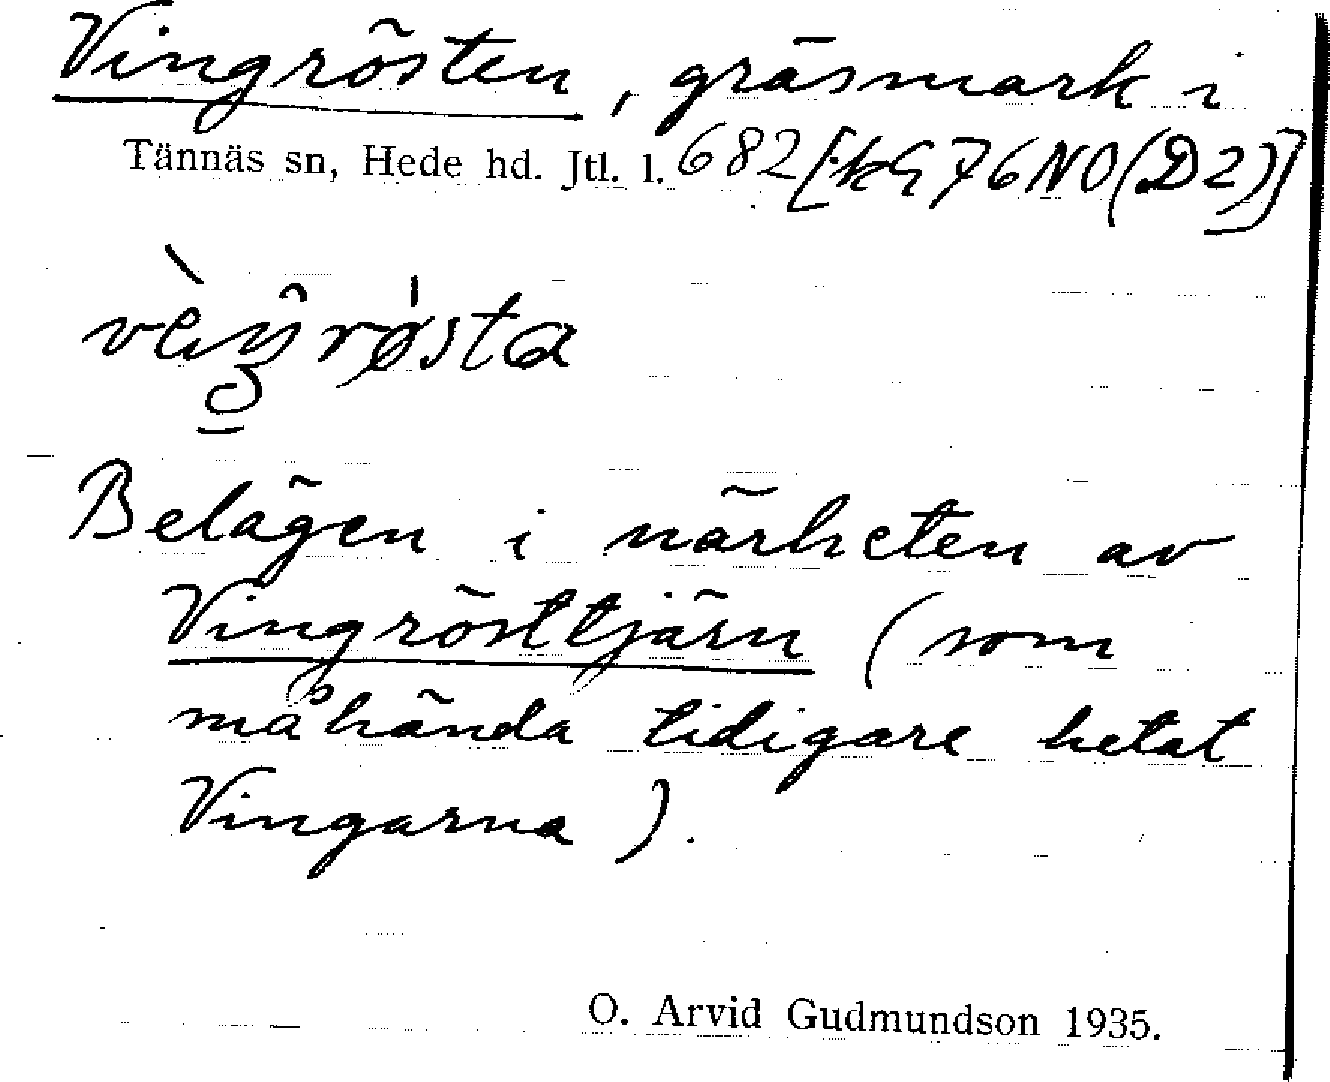 Vingrösten, gräsmark i
Tännäs sn, Hede hd. Jtl. l. 682 [kG 76 NO (D2)]
Belägen i närheten av
Vingrösttjärn (som
måhända tidigare hetat
Vingarna).
O. Arvid Gudmundson 1935.